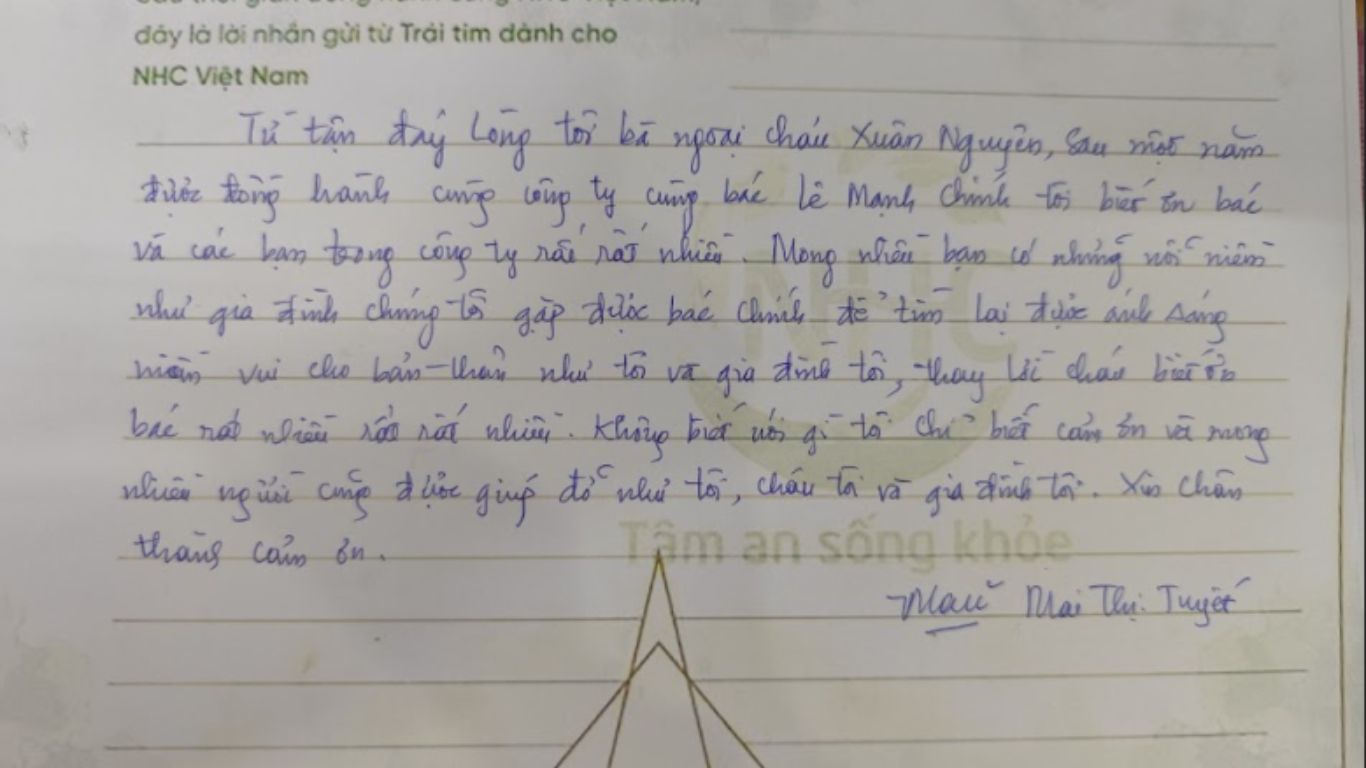 Sau thời gian đồng hành cùng NHC Việt Nam,
đây là lời nhắn gửi từ Trái tim dành cho
NHC Việt Nam
Từ tận đáy lòng tôi bà ngoại cháu Xuân Nguyên, sau một năm
được đồng hành cùng công ty cùng bác Lê Mạnh Chính tôi biết ơn bác
và các bạn trong công ty rất rất nhiều. Mong nhiều bạn có những nỗi niềm
như gia đình chúng tôi gặp được bác Chính để tìm lại được ánh sáng
niềm vui cho bản-thân như tôi và gia đình tôi, thay lời cháu biết ơn
bác rất nhiều rất rất nhiều. Không biết nói gì tôi chỉ biết cảm ơn và mong
nhiều người cũng được giúp đỡ như tôi, cháu tôi và gia đình tôi. Xin chân
thành cảm ơn.
NHC
Tâm an sống khỏe
Mai Thị Tuyết